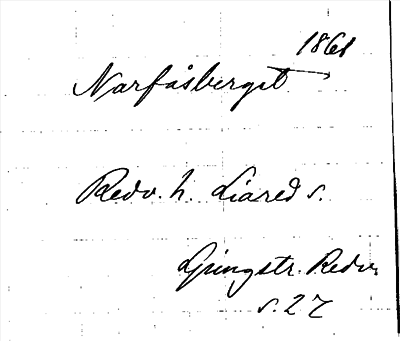 1861
Narfåsberget
Redv. h. Liared s.
Ljungstr. Redv.
s. 27